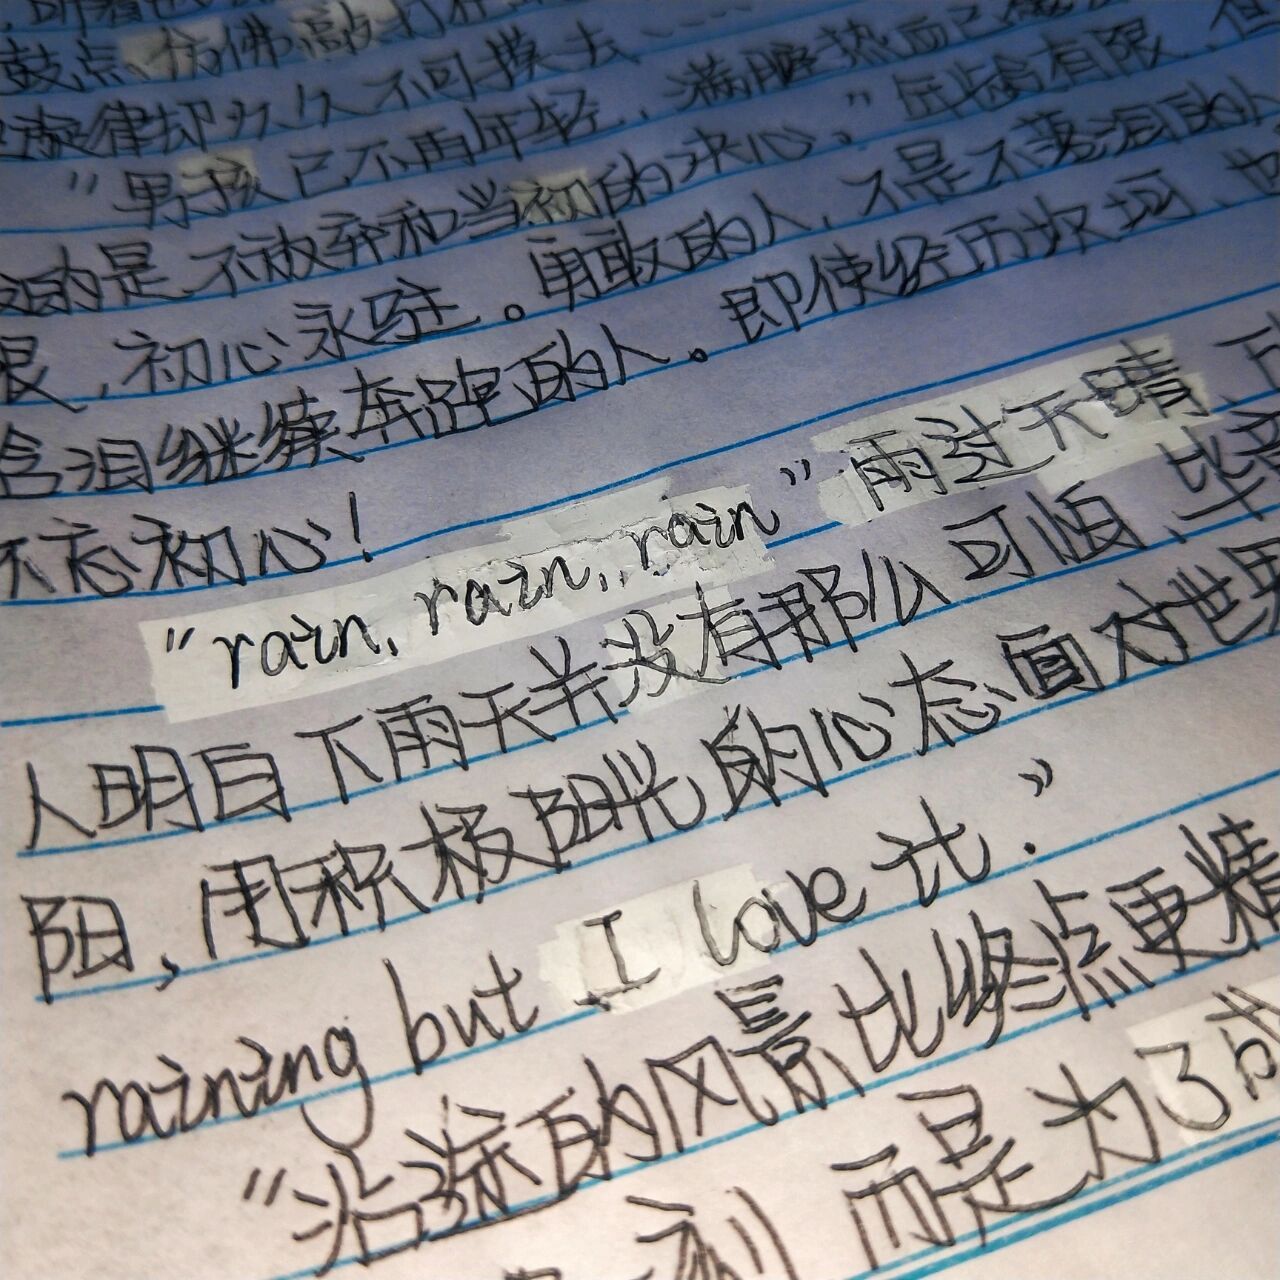 鼓点,仿佛敲打在
旋律却久久不可摸去……
"男孩已不再年轻,满腔热血已
的是不放弃和当初的决心。"生齿有限,但
限,初心永驻。勇敢的人,不是不落泪的人
含泪继续奔跑的人。即使经历坎坷,也
不忘初心!
"rain, rain, rain" 雨过天晴,
人明白下雨天并没有那么可怕,毕竟
阳,用积极阳光的心态面对世界
raining but I love it."
"沿途的风景比终点更精
而是为了